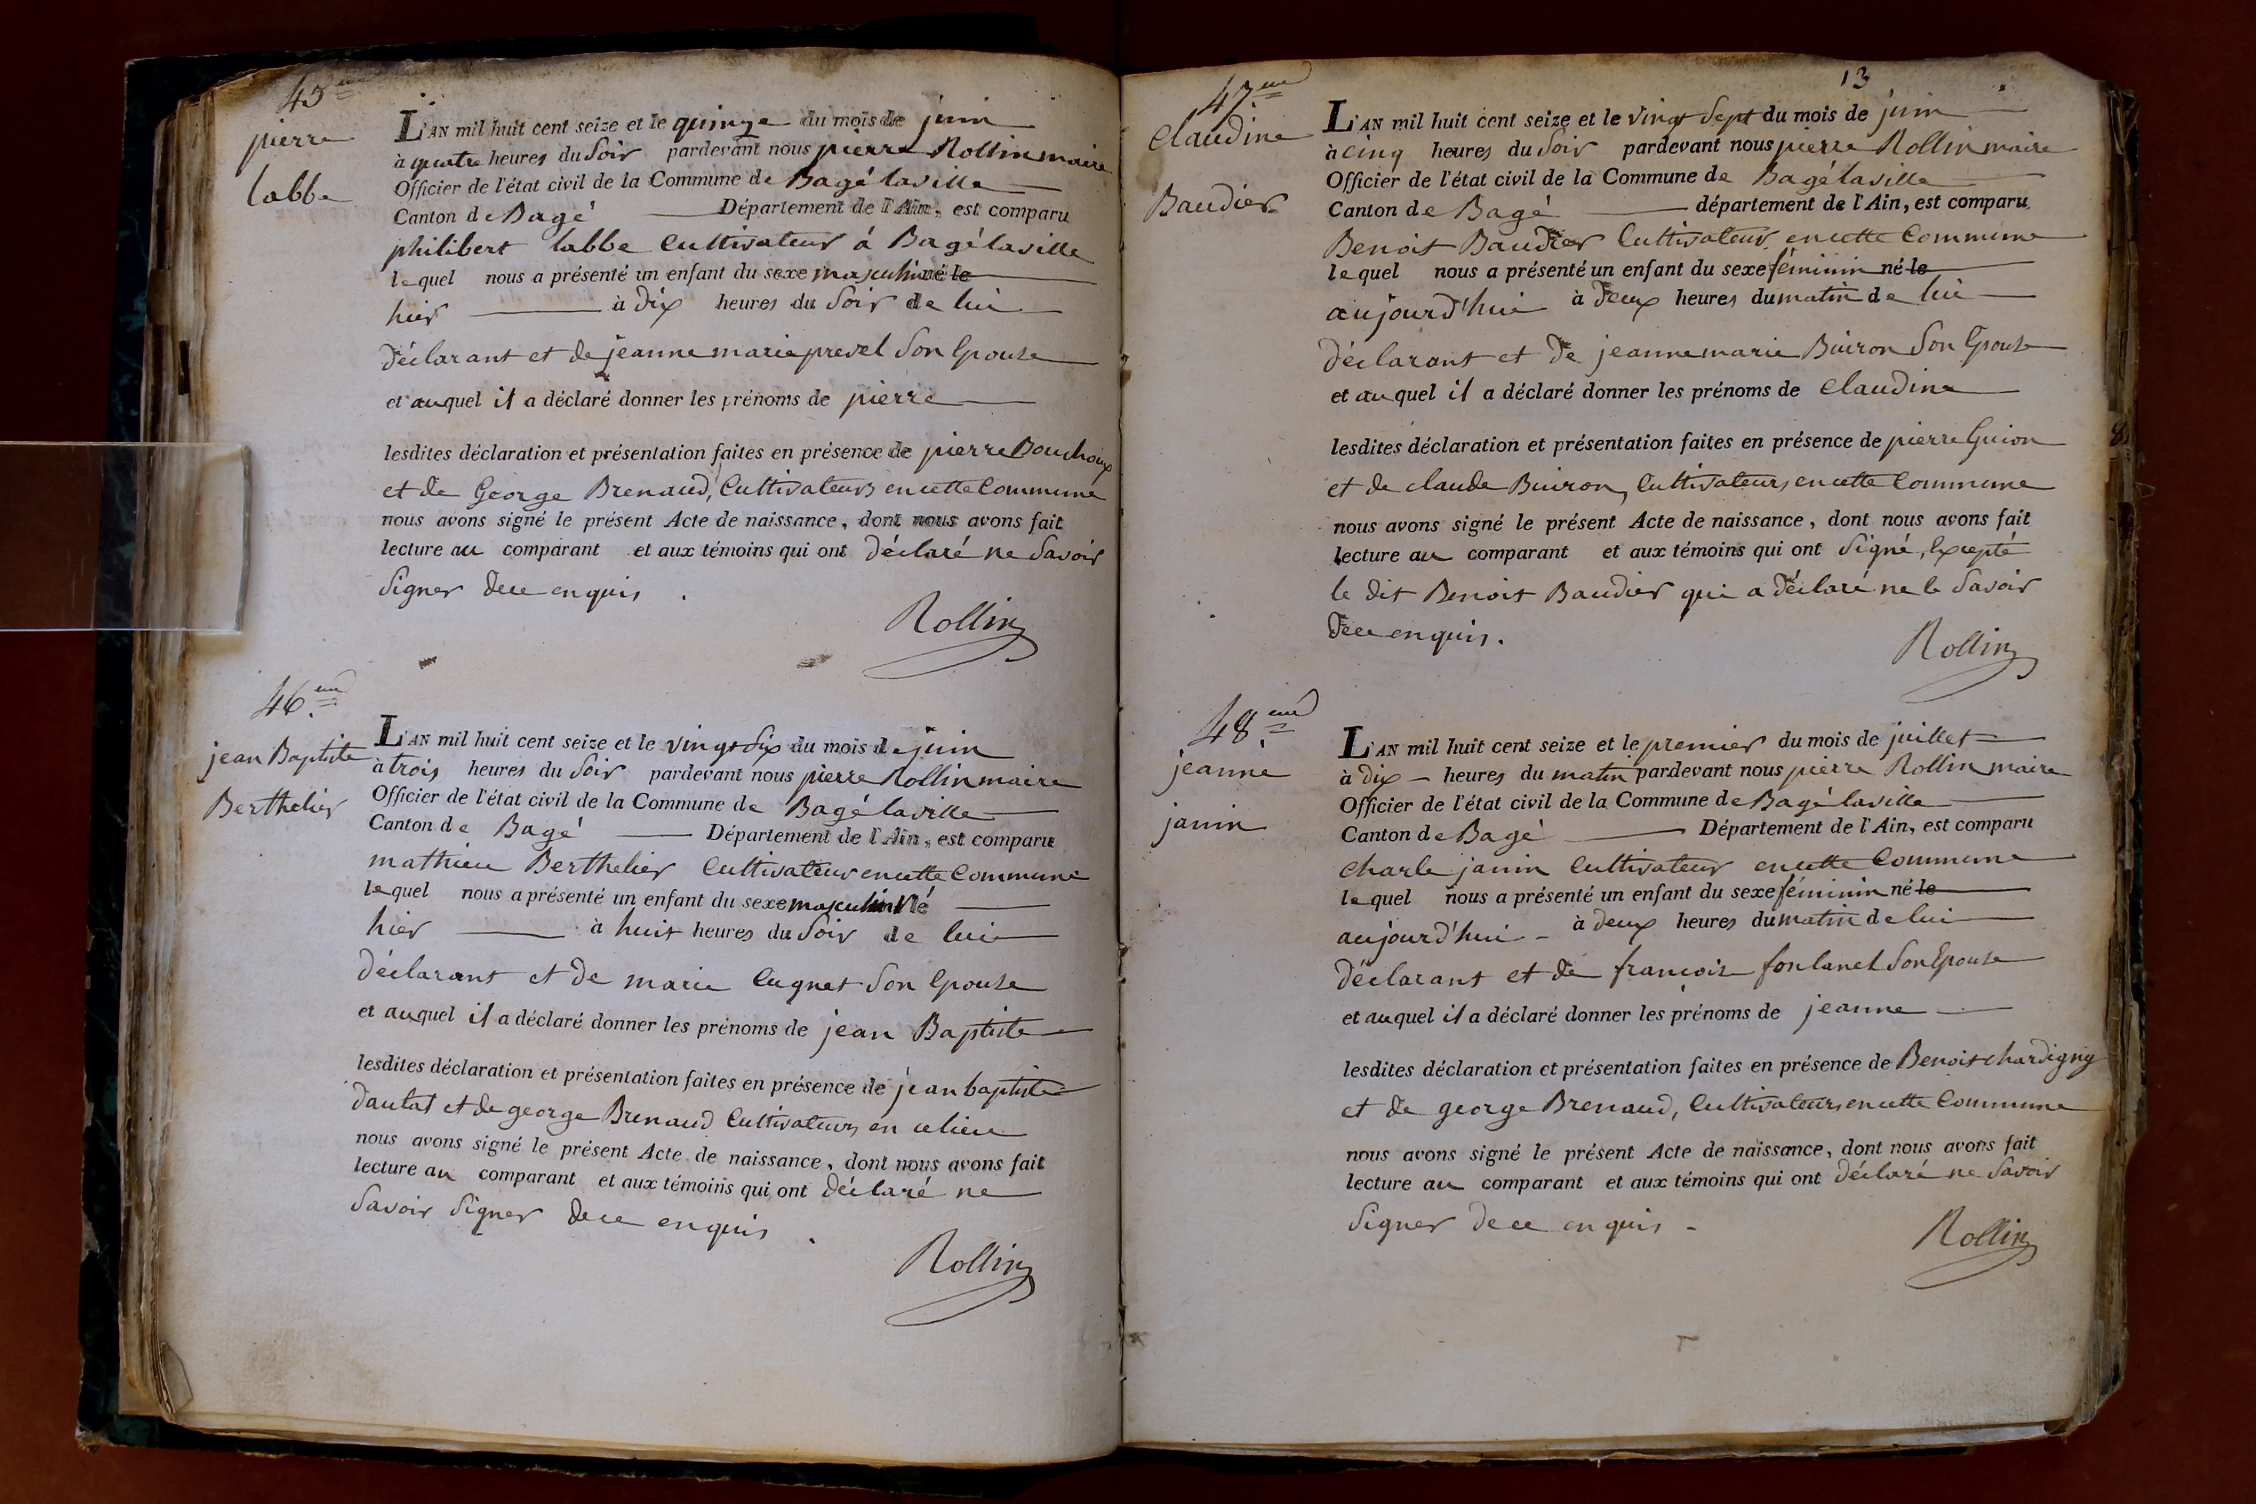 45eme
pierre
labbe
L'AN mil huit cent seize et le quinze du mois de juin
à quatre heures du Soir pardevant nous pierre Rollin maire
Officier de l'état civil de la Commune de Bagé laville
Canton de Bagé Département de l'Ain, est comparu
philibert labbe Cultivateur á Bagé laville
lequel nous a présenté un enfant du sexe masculin né le
hier à dix heures du Soir de lui
déclarant et de jeanne marie prevel Son Epouse
et auquel il a déclaré donner les prénoms de pierre
lesdites déclaration et présentation faites en présence de pierre Bouchoux
et de George Brenaud, Cultivateurs en cette Commune
nous avons signé le présent Acte de naissance, dont nous avons fait
lecture au comparant et aux témoins qui ont déclaré ne Savoir
Signer de ce enquis.
Rollin
46.eme
jean Baptiste
Berthelier
L'AN mil huit cent seize et le vingt Six du mois de juin
à trois heures du Soir pardevant nous pierre Rollin maire
Officier de l'état civil de la Commune de Bagé laville
Canton de Bagé Département de l'Ain, est comparu
mathieu Berthelier Cultivateur en cette Commune
lequel nous a présenté un enfant du sexe masculin Né
hier à huit heures du Soir de lui
déclarant et de marie Cugnet Son Epouse
et auquel il a déclaré donner les prénoms de jean Baptiste
lesdites déclaration et présentation faites en présence de jean baptiste
dautal et de george Brenaud Cultivateurs en ce lieu
nous avons signé le présent Acte de naissance, dont nous avons fait
lecture au comparant et aux témoins qui ont déclaré ne
Savoir Signer de ce enquis.
Rollin
13
47.eme
Claudine
Baudier
L'AN mil huit cent seize et le vingt Sept du mois de juin
à cinq heures du Soir pardevant nous pierre Rollin maire
Officier de l'état civil de la Commune de Bagé laville
Canton de Bagé département de l'Ain, est comparu
Benoit Baudier Cultivateur en cette Commune
lequel nous a présenté un enfant du sexe féminin né le
aujourd'hui à deux heures du matin de lui
déclarant et de jeanne marie Buiron Son Epouse
et auquel il a déclaré donner les prénoms de Claudine
lesdites déclaration et présentation faites en présence de pierre Guion
et de claude Buiron, Cultivateurs en cette Commune
nous avons signé le présent Acte de naissance, dont nous avons fait
lecture au comparant et aux témoins qui ont Signé, Excepté
le dit Benoit Baudier qui a déclaré ne le Savoir
de ce enquis.
Rollin
48.eme
jeanne
janin
L'AN mil huit cent seize et le premier du mois de juillet
à dix heures du matin pardevant nous pierre Rollin maire
Officier de l'état civil de la Commune de Bagé laville
Canton de Bagé Département de l'Ain, est comparu
charle janin Cultivateur en cette Commune
lequel nous a présenté un enfant du sexe féminin né le
aujourd'hui à deux heures du matin de lui
déclarant et de francoise fontanel Son Epouse
et auquel il a déclaré donner les prénoms de jeanne
lesdites déclaration et présentation faites en présence de Benoit chardigny
et de george Brenaud, Cultivateurs en cette Commune
nous avons signé le présent Acte de naissance, dont nous avons fait
lecture au comparant et aux témoins qui ont déclaré ne Savoir
Signer de ce enquis
Rollin